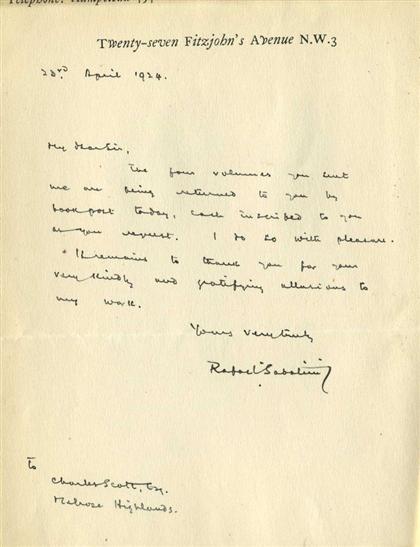 Telephone: Hampstead
Twenty-seven Fitzjohn's Avenue N.W.3
23rd April 1924.
My dear Sir,
The four volumes you sent
me are being returned to you by
book post today, each inscribed to you
as you request. I do so with pleasure.
It remains to thank you for your
very kindly and gratifying allusions to
my work.
Yours very truly
Rafael Sabatini
To
Charles Scott, Esq.
Melrose Highlands.